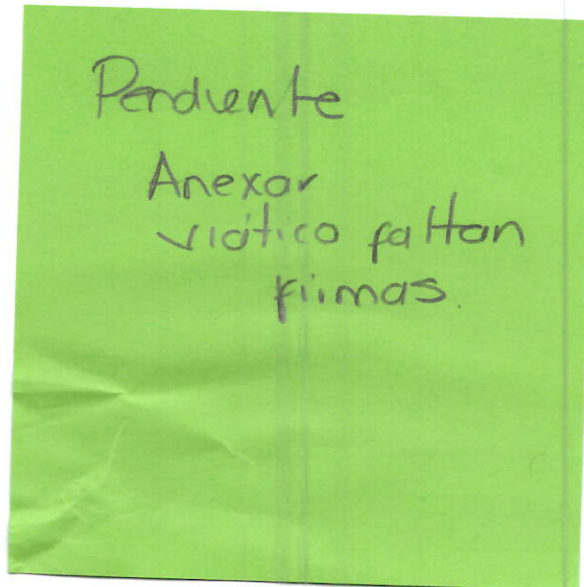 Pendiente
Anexar
viático faltan
firmas.